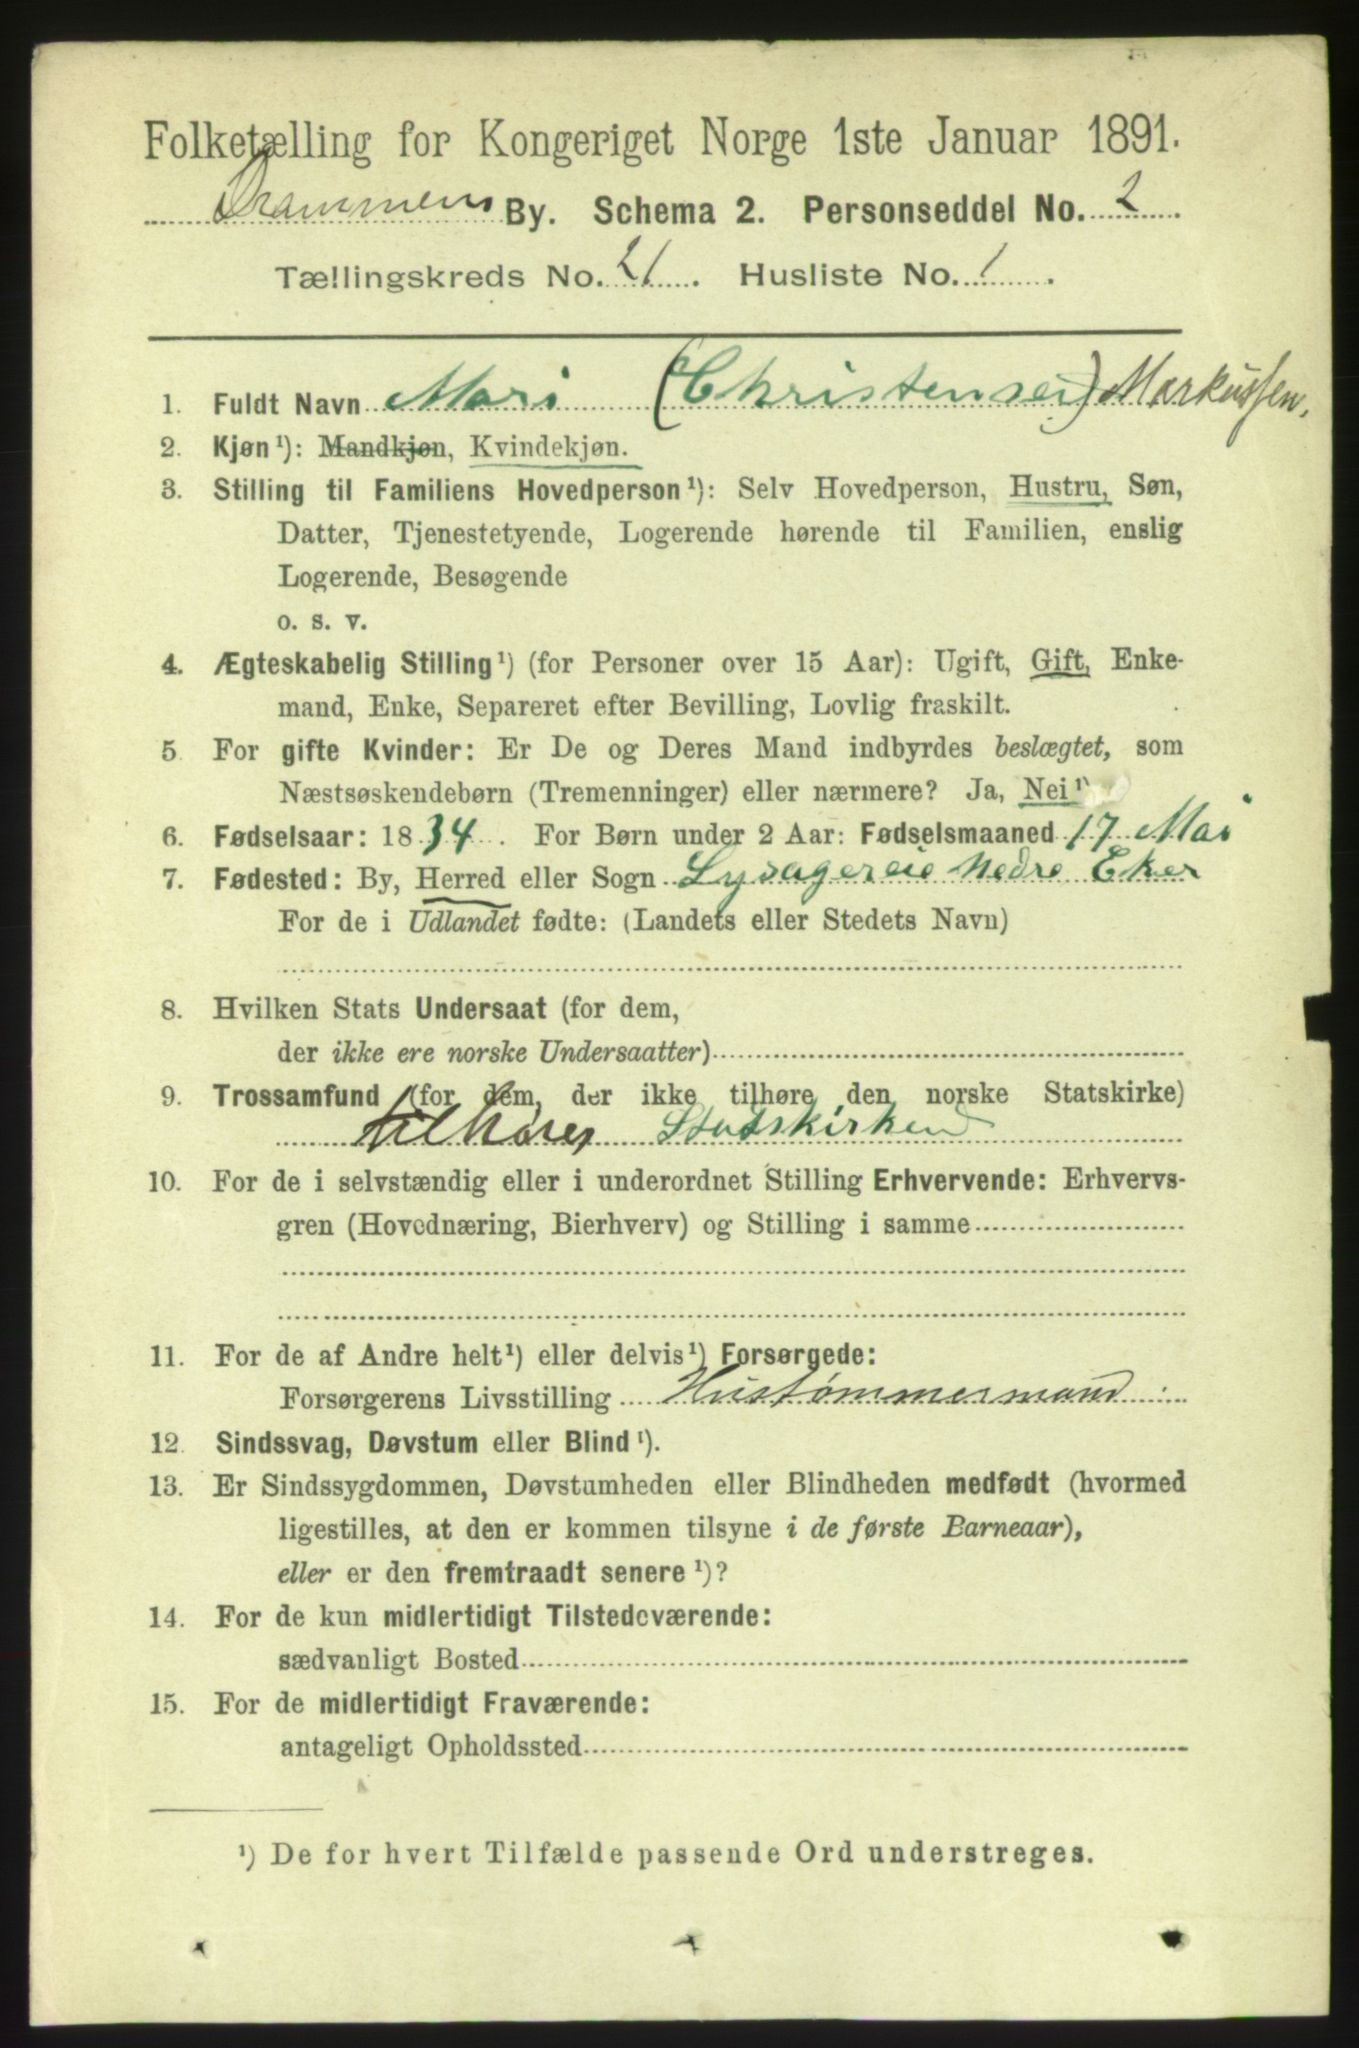 Folketælling for Kongeriget Norge 1ste Januar 1891.
Drammens By. Schema 2. Personseddel No. 2
Tællingskreds No. 21. Husliste No. 1.
1. Fuldt Navn Mari (Christensen) Markussen,
2. Kjøn ¹): Mandkjøn, Kvindekjøn.
3. Stilling til Familiens Hovedperson ¹): Selv Hovedperson, Hustru, Søn,
Datter, Tjenestetyende, Logerende hørende til Familien, enslig
Logerende, Besøgende
o. s. v.
4. Ægteskabelig Stilling ¹) (for Personer over 15 Aar): Ugift, Gift, Enke-
mand, Enke, Separeret efter Bevilling, Lovlig fraskilt.
5 For gifte Kvinder: Er De og Deres Mand indbyrdes beslægtet, som
Næstsøskendebørn (Tremenninger) eller nærmere? Ja, Nei ¹)
6. Fødselsaar: 1834. For Børn under 2 Aar: Fødselsmaaned 17 Mai
7. Fødested: By, Herred eller Sogn Lysagereie Nedre Eker
For de i Udlandet fødte: (Landets eller Stedets Navn)
8. Hvilken Stats Undersaat (for dem,
der ikke ere norske Undersaatter)
9. Trossamfund (for dem, der ikke tilhøre den norske Statskirke)
tilhører Statskirken
10. For de i selvstændig eller i underordnet Stilling Erhvervende: Erhvervs-
gren (Hovednæring, Bierhverv) og Stilling i samme
11. For de af Andre helt ¹) eller delvis ¹) Forsørgede:
Forsørgerens Livsstilling Hustømmermand
12. Sindssvag, Døvstum eller Blind ¹).
13. Er Sindssygdommen, Døvstumheden eller Blindheden medfødt (hvormed
ligestilles, at den er kommen tilsyne i de første Barneaar),
eller er den fremtraadt senere ¹)?
14. For de kun midlertidigt Tilstedeværende:
sædvanligt Bosted
15. For de midlertidigt Fraværende:
antageligt Opholdssted
¹) De for hvert Tilfælde passende Ord understreges.